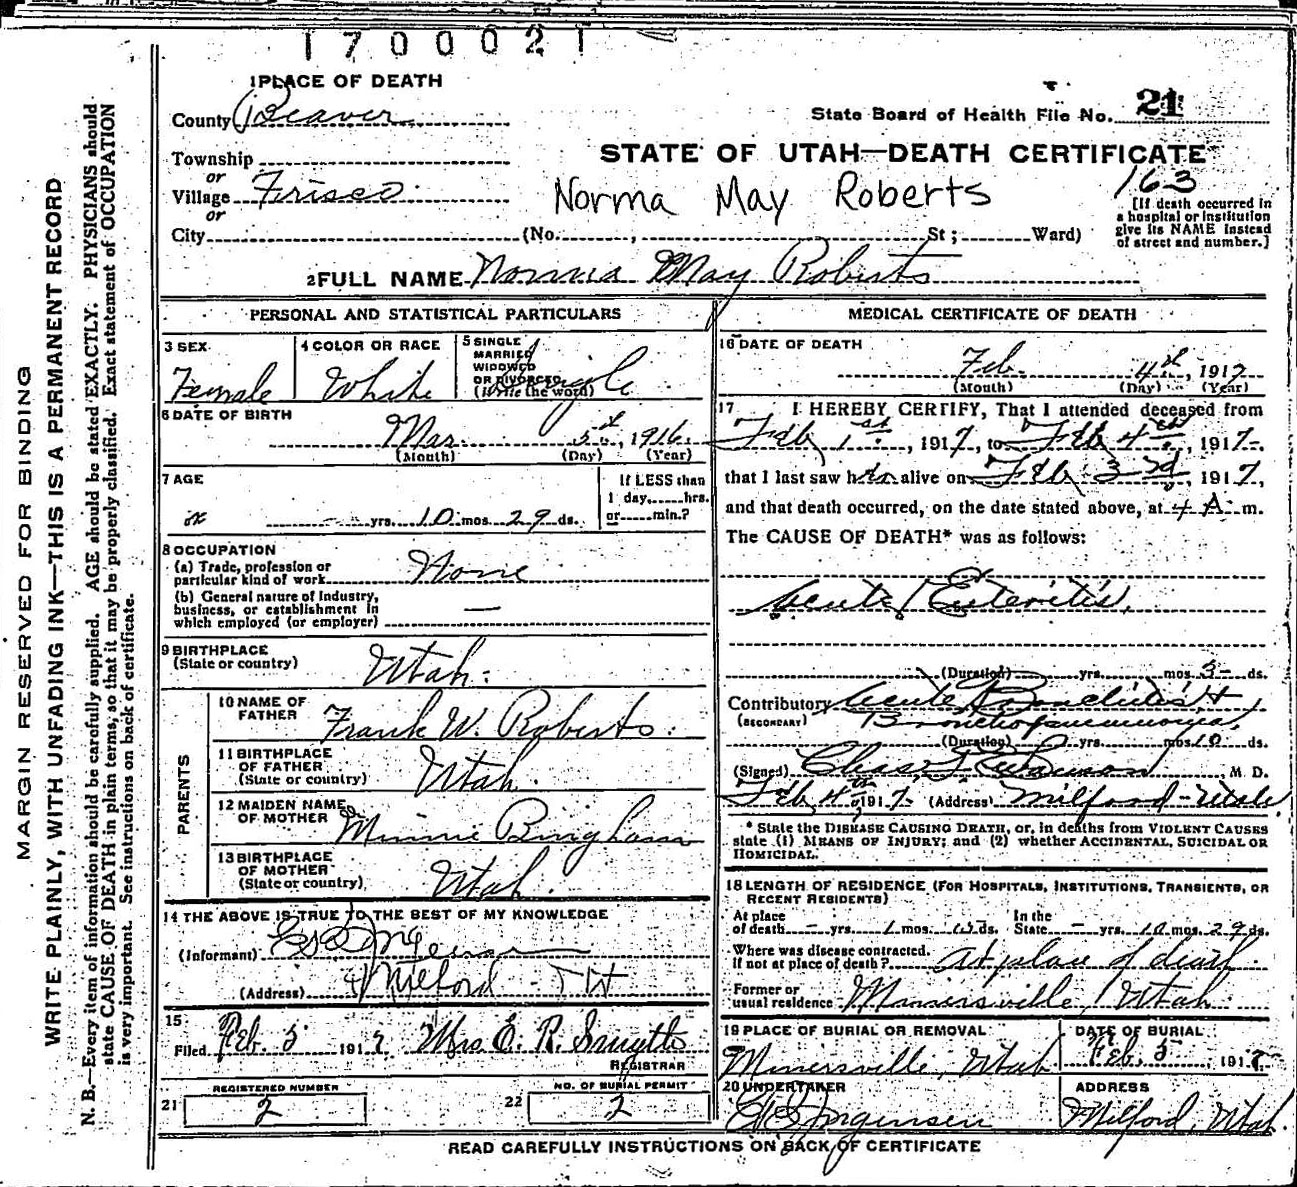 1700021
1 PLACE OF DEATH
County Beaver
State Board of Health File No. 21
Township
STATE OF UTAH—DEATH CERTIFICATE
or
Village Frisco
Norma May Roberts
163
or
[If death occurred in a hospital or institution give its NAME instead of street and number.]
City (No. , St; Ward)
2 FULL NAME Norma May Roberts
PERSONAL AND STATISTICAL PARTICULARS
3 SEX
Female
4 COLOR OR RACE
White
5 SINGLE
MARRIED
WIDOWED
OR DIVORCED
(Write the word)
Single
6 DATE OF BIRTH
Mar. 5th, 1916
(Month) (Day) (Year)
7 AGE
yrs. 10 mos. 29 ds.
If LESS than
1 day, hrs.
or min.?
8 OCCUPATION
(a) Trade, profession or
particular kind of work None
(b) General nature of industry,
business, or establishment in
which employed (or employer) —
9 BIRTHPLACE
(State or country) Utah.
PARENTS
10 NAME OF
FATHER Frank W. Roberts.
11 BIRTHPLACE
OF FATHER
(State or country) Utah.
12 MAIDEN NAME
OF MOTHER Minnie Bingham
13 BIRTHPLACE
OF MOTHER
(State or country) Utah.
14 THE ABOVE IS TRUE TO THE BEST OF MY KNOWLEDGE
(Informant)
(Address) Milford
15
Filed Feb. 5 1917 Mrs E. R. Smyth
REGISTRAR
REGISTERED NUMBER
21 2
NO. OF BURIAL PERMIT
22 2
MEDICAL CERTIFICATE OF DEATH
16 DATE OF DEATH
Feb. 4th, 1917
(Month) (Day) (Year)
17 I HEREBY CERTIFY, That I attended deceased from
Feb 1st, 1917, to Feb 4th, 1917,
that I last saw her alive on Feb 3rd, 1917,
and that death occurred, on the date stated above, at 4 A. m.
The CAUSE OF DEATH* was as follows:
Acute Enteritis,
(Duration) yrs. mos. 3 ds.
Contributory Acute Bronchitis, +
(SECONDARY) Bronchopneumonia,
(Duration) yrs. mos. 10 ds.
(Signed) Chas. , M. D.
Feb 4th 1917 (Address) Milford – Utah
* State the DISEASE CAUSING DEATH, or, in deaths from VIOLENT CAUSES
state (1) MEANS OF INJURY; and (2) whether ACCIDENTAL, SUICIDAL OR
HOMICIDAL.
18 LENGTH OF RESIDENCE (FOR HOSPITALS, INSTITUTIONS, TRANSIENTS, OR
RECENT RESIDENTS)
At place
of death – yrs. 1 mos. 15 ds.
In the
State – yrs. 10 mos. 29 ds.
Where was disease contracted.
If not at place of death? At place of death.
Former or
usual residence Minersville, Utah
19 PLACE OF BURIAL OR REMOVAL
Minersville, Utah
DATE OF BURIAL
Feb. 5, 1917
20 UNDERTAKER
Jorgensen
ADDRESS
Milford, Utah.
READ CAREFULLY INSTRUCTIONS ON BACK OF CERTIFICATE
MARGIN RESERVED FOR BINDING
WRITE PLAINLY, WITH UNFADING INK—THIS IS A PERMANENT RECORD
N. B.—Every item of information should be carefully supplied. AGE should be stated EXACTLY. PHYSICIANS should
state CAUSE OF DEATH in plain terms, so that it may be properly classified. Exact statement of OCCUPATION
is very important. See instructions on back of certificate.